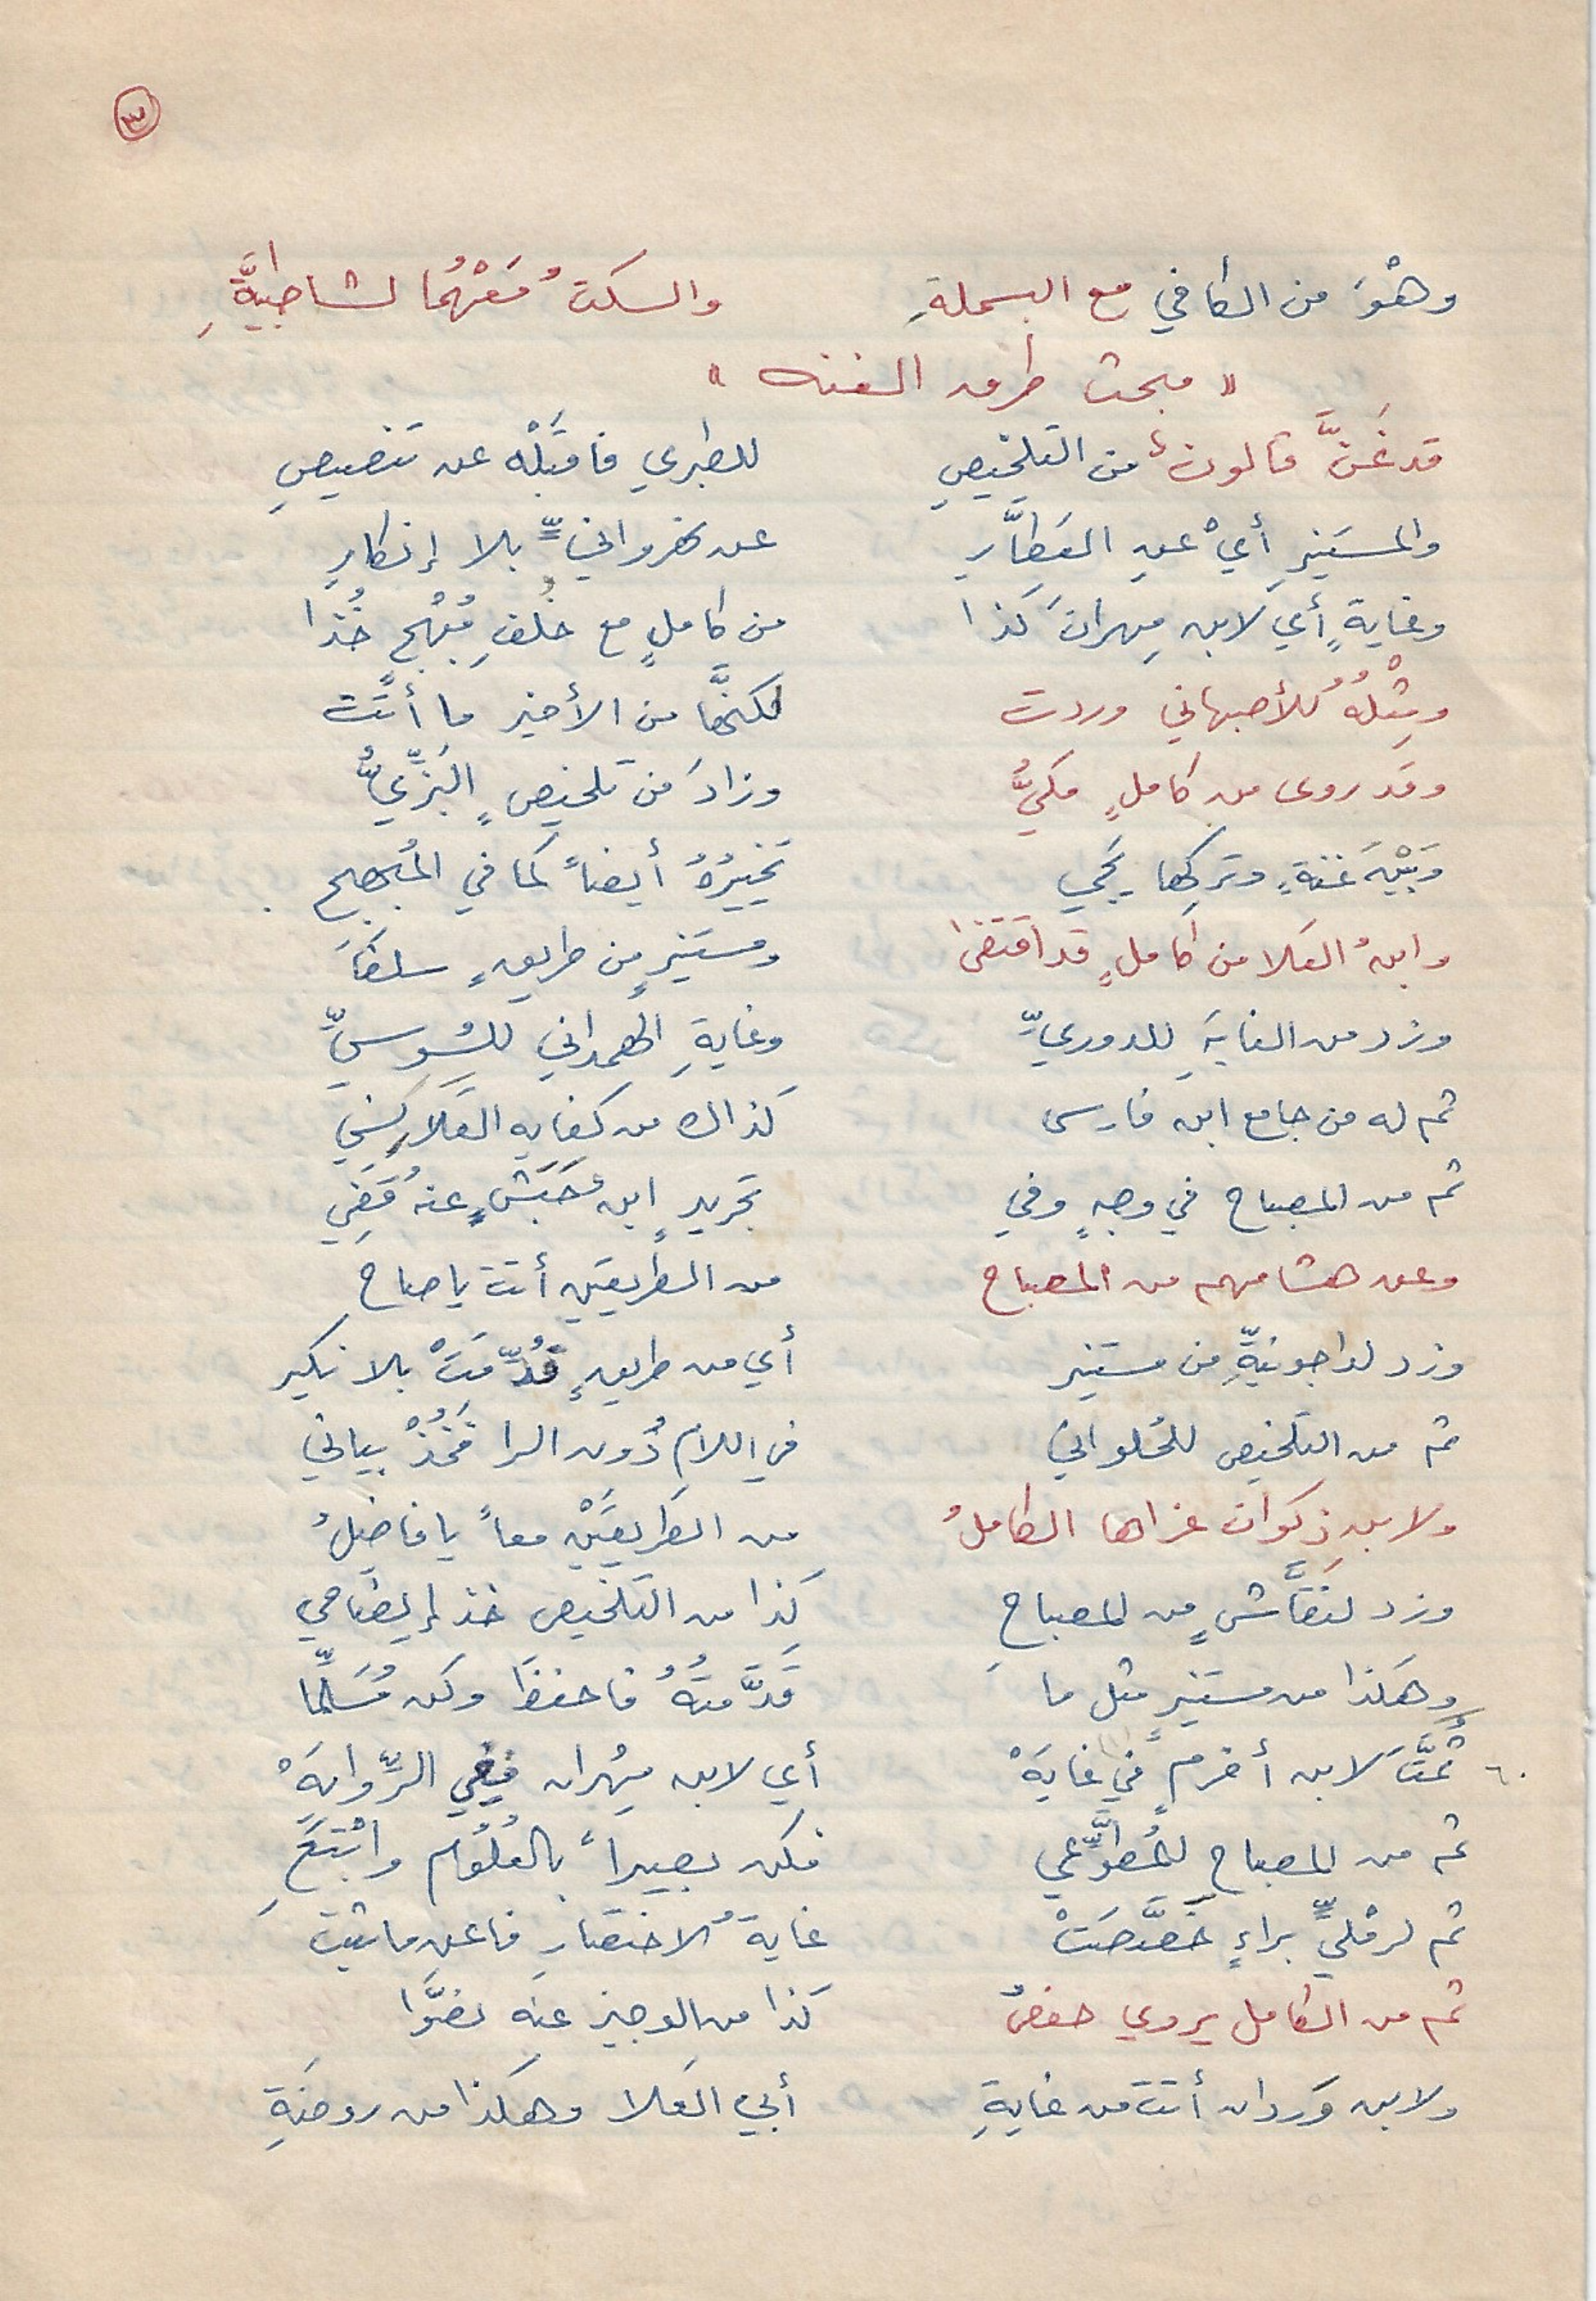 ٣
وهْوَ من الكافي مع البسملةِ والسكتُ مَعْهُما لشاطبيَّةِ
« مبحث طرق الغنه »
قد غَنَّ قالونُ من التلخيصِ للطبري فاقبَلْه عن تنصيصِ
والمستنيرِ أيْ عنِ العَطَّارِ عن نهروانيٍّ بلا إنكارِ
وغايةٍ أي لابن مِهرانَ كذا من كاملٍ مع خُلفِ مُبْهجٍ خُذا
ومِثْلُهُ للأصبهاني وردت لكنَّها من الأخير ما أتَت
وقد روى من كاملٍ مكيُّ وزادَ من تلخيصٍ البَزِّيُّ
وَبَيْنَ غنةٍ وتركها يجي تخييرُهُ أيضاً كما في المُبهج
وابنُ العَلا من كاملٍ قد اقتفى ومستنيرٍ من طريقٍ سلفَا
وزد من الغايةِ للدوريِّ وغايةِ الهمداني للسُوسيِّ
ثم له من جامع ابن فارسِ كذاك من كفاية القَلَانِسِي
ثم من المصباح في وجهٍ وفي تجريدٍ ابنُ حَبَشٍ عنهُ قَفِي
وعن هشامهم من المصباح من الطريقين أتت يا صاح
وزد لداجونيِّهِ من مستنير أي من طريقٍ قُدِّمَتْ بلا نكير
ثم من التلخيص للحُلواني في اللام دُون الرا فَخُذْ بياني
ولابنِ ذكوان عزاها الكاملُ من الطريقَيْن معاً يا فاضِلُ
وزد لنَقَّاشٍ من المصباحِ كذا من التلخيص خذ إيضاحي
وهكذا من مستنيرٍ مثل ما قَدَّمتُهُ فاحفظَ وكن مُسَلِّمَا
٦٠ ثُمَّتَ لابن أخرمٍ في غايَهْ أي لابن مِهْران ففي الرِّوايَهْ
ثم من المصباح للمُطوِّعي فكن بصيراً بالعُلُوم واتْبَعِ
ثم لرمليٍّ براءٍ خَصَّصَتْ غايةُ الاختصارِ فاعنِ ما ثبت
ثم من الكامل يروي حفصُ كذا من الوجيز عنه نصُّوا
ولابن وَردان أتت من غايةِ أبي العَلا وهكذا من روضَةِ